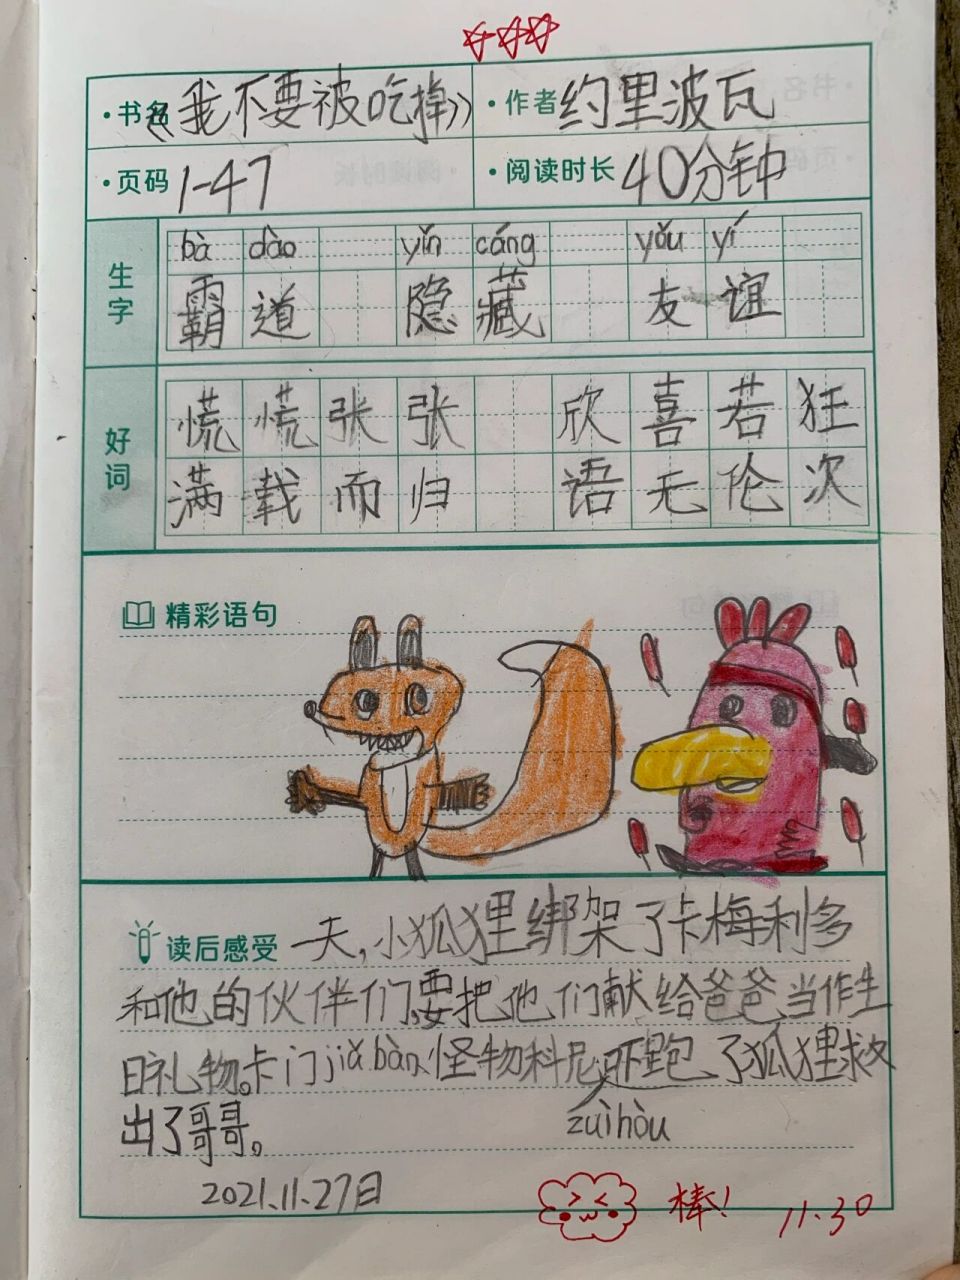 ·书名《我不要被吃掉》 ·作者 约里波瓦
·页码 1-47 ·阅读时长 40分钟
bà dào yǐn cáng yǒu yí
生字 霸道 隐藏 友谊
好词 慌慌张张 欣喜若狂
满载而归 语无伦次
精彩语句
读后感受 一天,小狐狸绑架了卡梅利多
和他的伙伴们,要把他们献给爸爸当作生
日礼物。卡门jiǎ bàn怪物科尼吓跑了狐狸救
zuì hòu
出了哥哥。
2021.11.27日
棒! 11.30